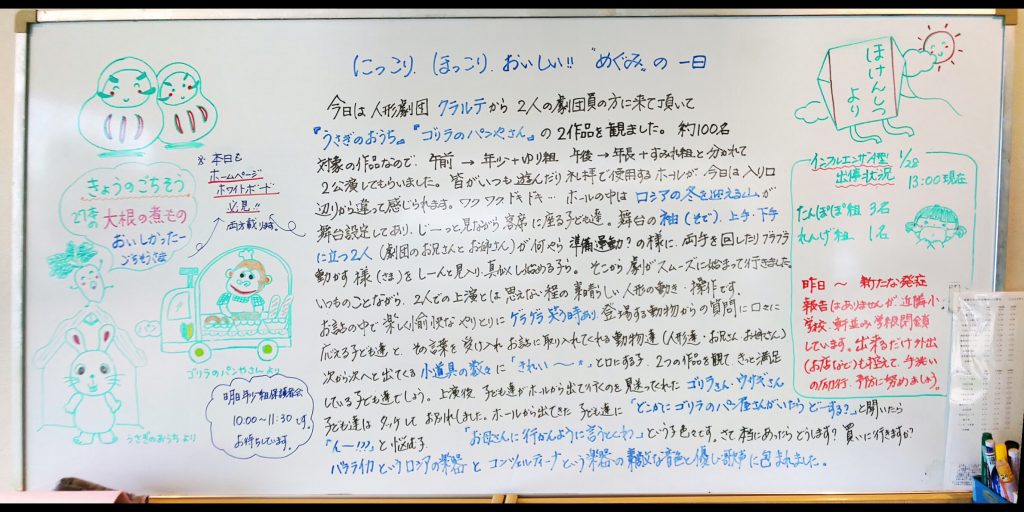 にっこり、ほっこり、おいしい!! "めぐみ"の一日
今日は人形劇団 クラルテから 2人の劇団員の方に来て頂いて
『うさぎのおうち』『ゴリラのパンやさん』の2作品を観ました。約100名
対象の作品なので、午前→年少+ゆり組 午後→年長+すみれ組と分かれて
2公演してもらいました。皆がいつも遊んだり礼拝で使用するホールが、今日は入り口
辺りから違って感じられます。ワクワクドキドキ… ホールの中は ロシアの冬を迎える山が
舞台設定してあり、じーっと見ながら客席に座る子ども達。舞台の袖(そで)、上手・下手
に立つ2人(劇団のお兄さんとお姉さん)が何やら準備運動?の様に、両手を回したりフラフラ
動かす様(さま)をしーんと見入り、真似し始める子ら。そこから劇がスムーズに始まって行きました。
いつものことながら、2人での上演とは思えない程の素晴らしい人形の動き・操作です。
お話の中で楽しく愉快なやりとりにゲラゲラ笑う時あり、登場する動物からの質問に口々に
応える子ども達と、その言葉を受け入れお話に取り入れてくれる動物達(人形達・お兄さんお姉さん)
次から次へと出てくる小道具の数々に「きれい〜〜*」と口にする子。2つの作品を観て、きっと満足
している子ども達でしょう。上演後、子ども達がホールから出て行くのを見送ってくれたゴリラさん・ウサギさん
子ども達は タッチして お別れしました。ホールから出てきた 子ども達に「どこかにゴリラのパン屋さんがいたらどーする?」と聞いたら
「んー!!!」と悩む子 「お母さんに行かんように言うとくわ」という子 色々です。さて本当にあったらどうします? 買いに行きますか?
バラライカというロシアの楽器とコンツェルティーナという楽器の素敵な音色と優しい歌声に包まれました。
※本日も
ホームページ
ホワイトボード
必見!!
両方載ります。
きょうのごちそう
大根の煮もの
おいしかったー
ごちそうさま
ゴリラのパンやさん より
うさぎのおうち より
明日年少組保護者会
10:00〜11:30です。
お待ちしています。
ほけんしつ
より
インフルエンザA型 1/28
出停状況 13:00現在
たんぽぽ組 3名
れんげ組 1名
昨日 〜 新たな発症
報告はありませんが近隣小
学校、軒並み学級閉鎖
しています。出来るだけ外出
(お店など)も控えて、手洗い
の励行、予防に努めましょう。